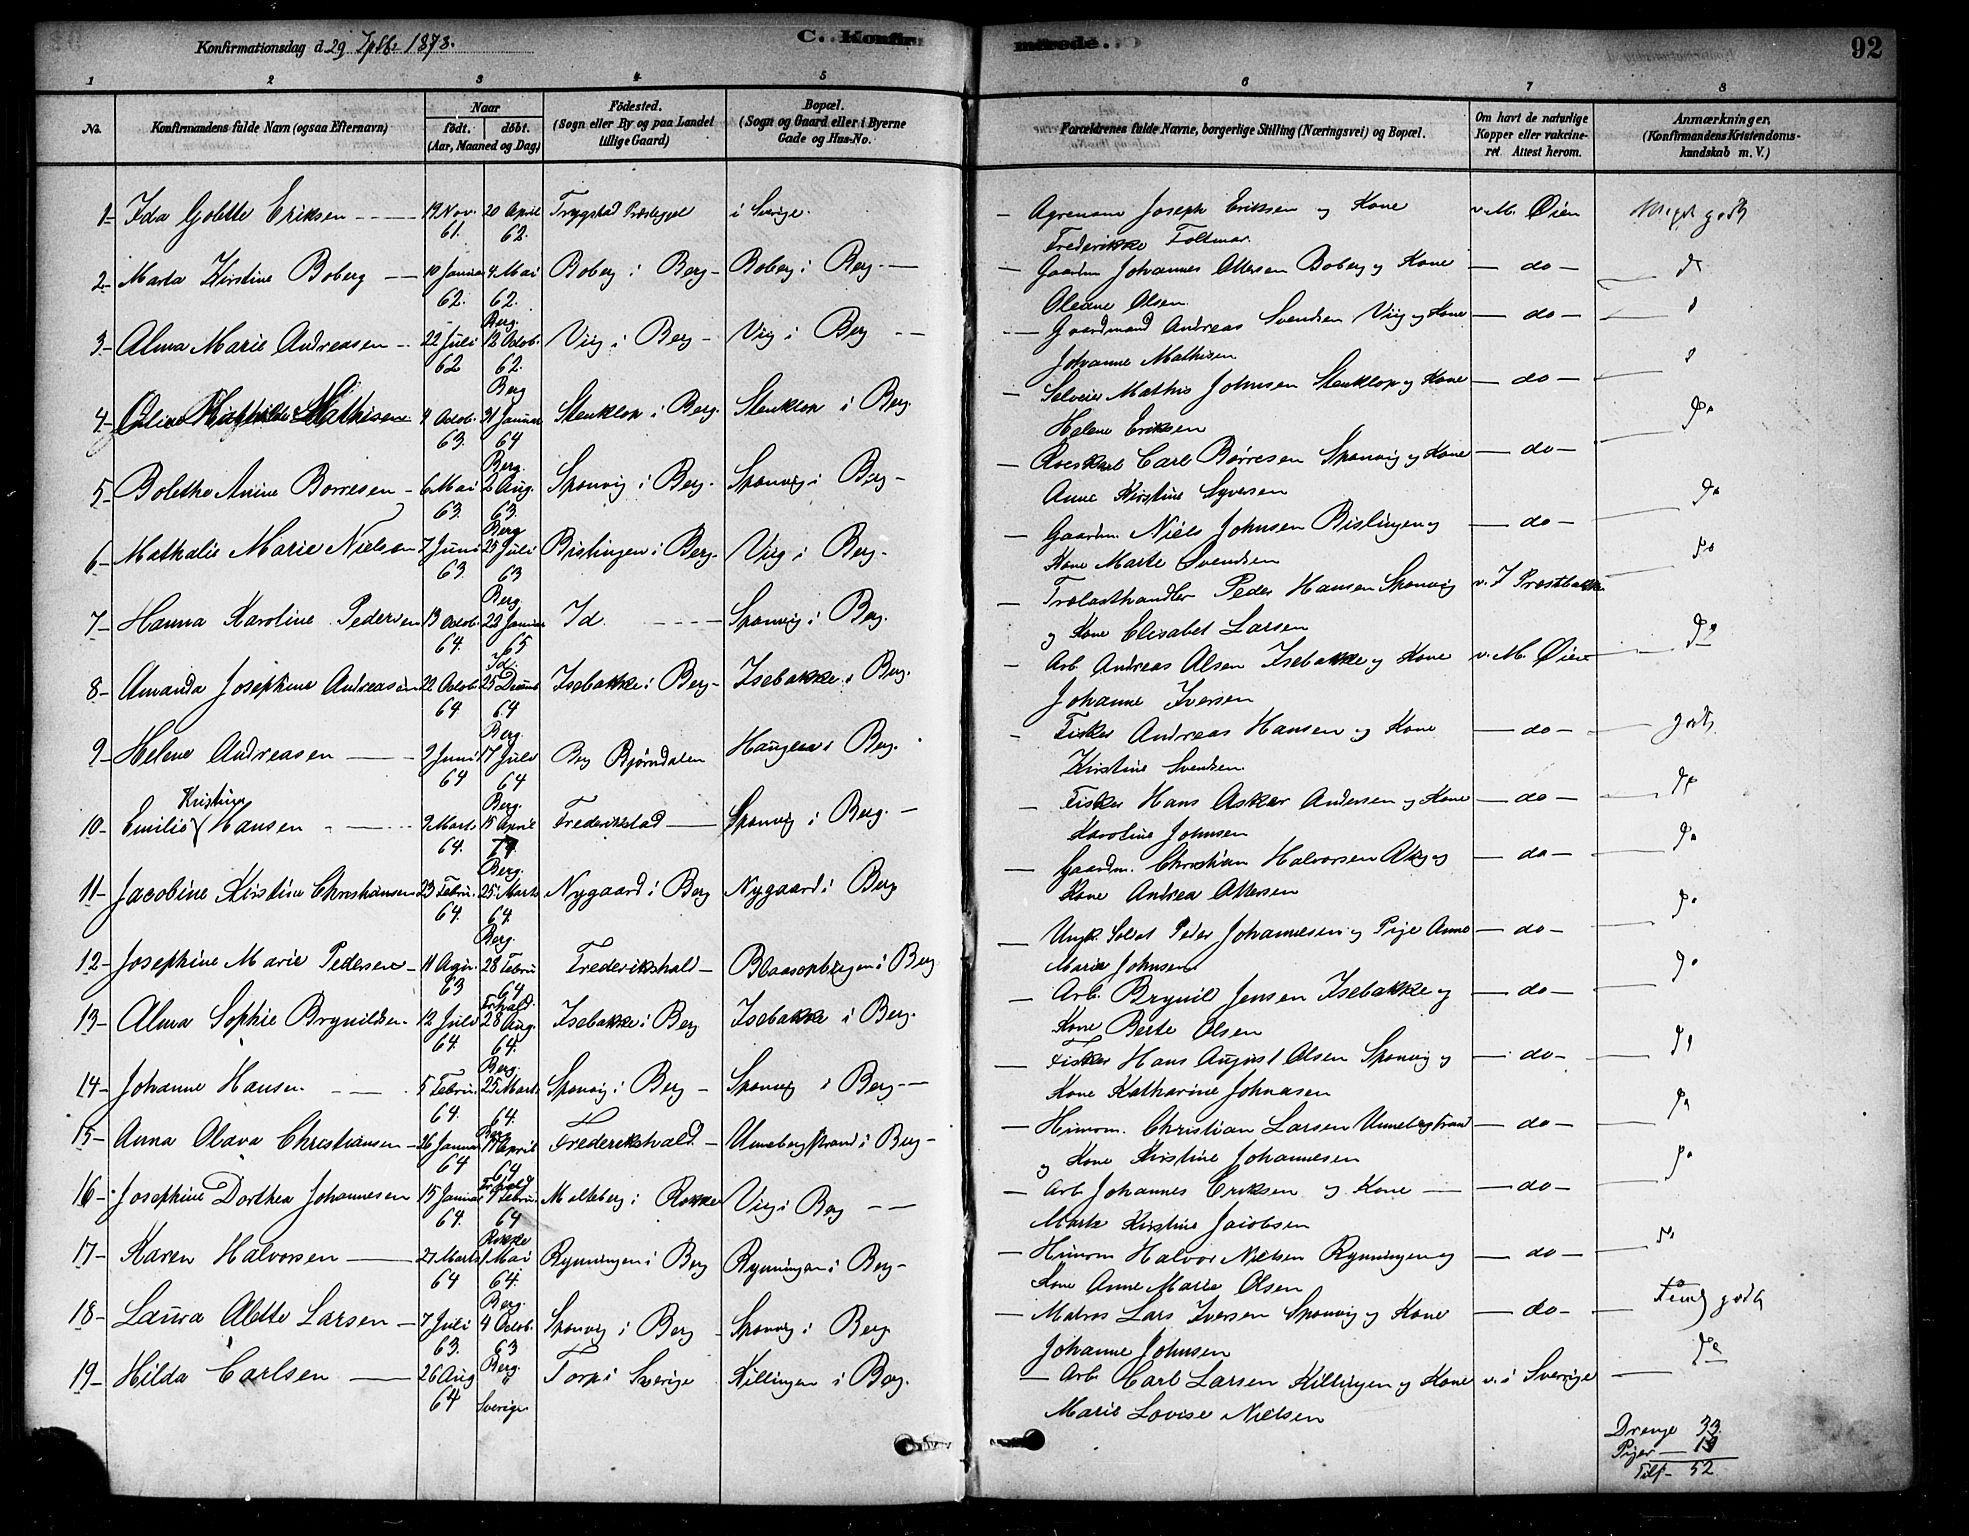 Konfirmationsdag d. 29 Septbr 1878.
C. Konfirmerede.
92
1 2 3 4 5 6 7 8
No. Konfirmandens fulde Navn (ogsaa Efternavn) Naar født. døbt. (Aar, Maaned og Dag) Fødested. (Sogn eller By og paa Landet tillige Gaard) Bopæl. (Sogn og Gaard eller i Byerne Gade og Hus-No. Forældrenes fulde Navne, borgerlige Stilling (Næringsvei) og Bopæl. Om havt de naturlige Kopper eller vakcineret. Attest herom. Anmærkninger, (Konfirmandens Kristendomskundskab m. V.)
1 Ida Golette Eriksen 19 Nov. 61. 20 April 62. Trygstad Præstegjel i Sverige. Agronom Joseph Eriksen og Kone Frederikke Foltmar v. M. Øien Meget godt
2 Marta Kirstine Boberg 10 Januar 62. 4 Mai 62. Berg. Boberg i Berg Boberg i Berg Gaardm. Johannes Ottersen Boberg og Kone Oleane Olsen do do
3 Alma Marie Andreasen 22 Juli 62 12 Octob. 62. Berg Viig i Berg Viig i Berg Gaardmand Andreas Svendsen Viig og Kone Johanne Mathisen do
4 Oline Mathilde Mathisen 4 Octob. 63. 31 Januar 64 Berg. Stenklop i Berg. Stenklop i Berg. Selveier Mathis Johnsen Stenklop og Kone Helene Eriksen do do
5 Bolethe Anine Borresen 6 Mai 63. 2 Aug. 63. Berg Sponvig i Berg. Sponvig i Berg Carl Børresen Sponvig og Kone Anne Kirstine Syversen do do
6 Mathalie Marie Nielsen 7 Juni 63. 25 Juli 63 Berg. Bislingen i Berg. Viig i Berg. Gaardm. Niels Johnsen Bislingen og Kone Marte Svendsen do do
7 Hanna Karoline Pedersen 13 Octob. 64. 22 Januar 65 Id. Id. Sponvig i Berg. Trælasthandler Peder Hansen Sponvig og Kone Elisabet Larsen v. J Prestbakke do
8 Amanda Josephine Andreasen 22 Octob. 64 25 Decemb. 64 Berg. Isebakke i Berg Isebakke i Berg. Arb. Andreas Olsen Isebakke og Kone Johanne Iversen v. M. Øien
9 Helene Andreasen 2 Juni 64 17 Juli 64 Berg. Berg Bjørndalen Haugen i Berg. Fisker Andreas Hansen og Kone Kirstine Svendsen do godt
10 Emilie Kristine Hansen 9 Marts 64. 15 April Berg. Frederikstad Sponvig i Berg. Fisker Hans Asker Andersen og Kone Karoline Johnsen do do
11 Jacobine Kirstine Christiansen 23 Febru. 64. 25 Marts 64. Berg. Nygaard i Berg Nygaard i Berg Gaardm. Christian Halvorsen og Kone Andrea Ottersen do do
12 Josephine Marie Pedersen 11 63 28 Febru 64 Frhald. Frederikshald Blaasopbugen i Berg Ungk. Soldat Peder Johannesen og Pige Anne Marie Johnsen do do
13 Alma Sophie Brynildsen 12 Juli 64. 28 Aug. 64. Berg. Isebakke i Berg Isebakke i Berg. Arb. Brynil Jensen Isebakke og Kone Berte Olsen do do
14 Johanne Hansen 5 Febru. 64. 25 Marts 64. Berg Sponvig i Berg Sponvig i Berg Fisker Hans August Olsen Sponvig og Kone Katharine Johnasen do do
15 Anna Olava Christiansen 26 Januar 64 April 64 Frhald Frederikshald Unneberg strand i Berg Husm. Christian Larsen Unnebergstrand og Kone Kirstine Johannesen do do
16 Josephine Dorthea Johannesen 15 Januar 64. Febru. 64 Rokke Molteberg i Rokke Viig i Berg Arb. Johannes Eriksen og Kone Marte Kirstine Jacobsen do do
17 Karen Halvorsen 27 Marts 64 1 Mai 64. Berg. Rynningen i Berg Rynningen i Berg Husm Halvor Nielsen Rynningen og Kone Anne Marie Olsen do
18 Laura Alette Larsen 7 Juli 63. 4 Octob. 63 Berg Sponvig i Berg Sponvig i Berg. Matros Lars Iversen Sponvig og Kone Johanne Johnsen do godt
19 Hilda Carlsen 26 Aug 64 Sverige Torp i Sverige Killingen i Berg. Arb. Carl Larsen Killingen og Kone Marie Lovise Nielsen v. i Sverige do
Drenge 33
Piger 19
Tils. 52